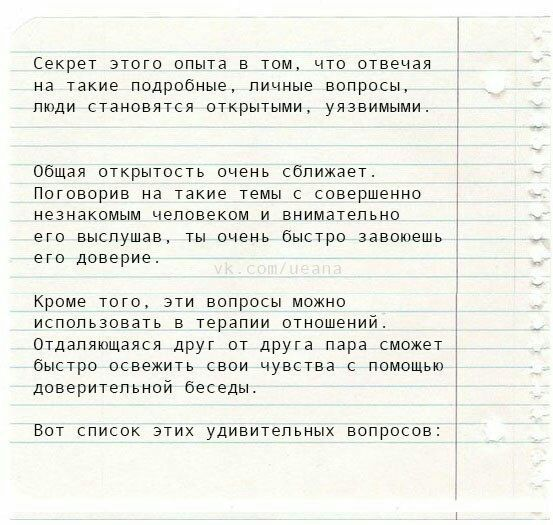 Секрет этого опыта в том, что отвечая
на такие подробные, личные вопросы,
люди становятся открытыми, уязвимыми.
Общая открытость очень сближает.
Поговорив на такие темы с совершенно
незнакомым человеком и внимательно
его выслушав, ты очень быстро завоюешь
его доверие.
vk.com/ueana
Кроме того, эти вопросы можно
использовать в терапии отношений.
Отдаляющаяся друг от друга пара сможет
быстро освежить свои чувства с помощью
доверительной беседы.
Вот список этих удивительных вопросов: